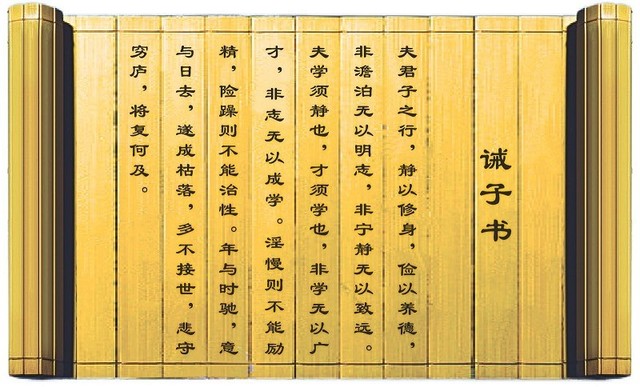 诫子书
夫君子之行，静以修身，俭以养德，
非澹泊无以明志，非宁静无以致远。
夫学须静也，才须学也，非学无以广
才，非志无以成学。淫慢则不能励
精，险躁则不能治性。年与时驰，意
与日去，遂成枯落，多不接世，悲守
穷庐，将复何及。